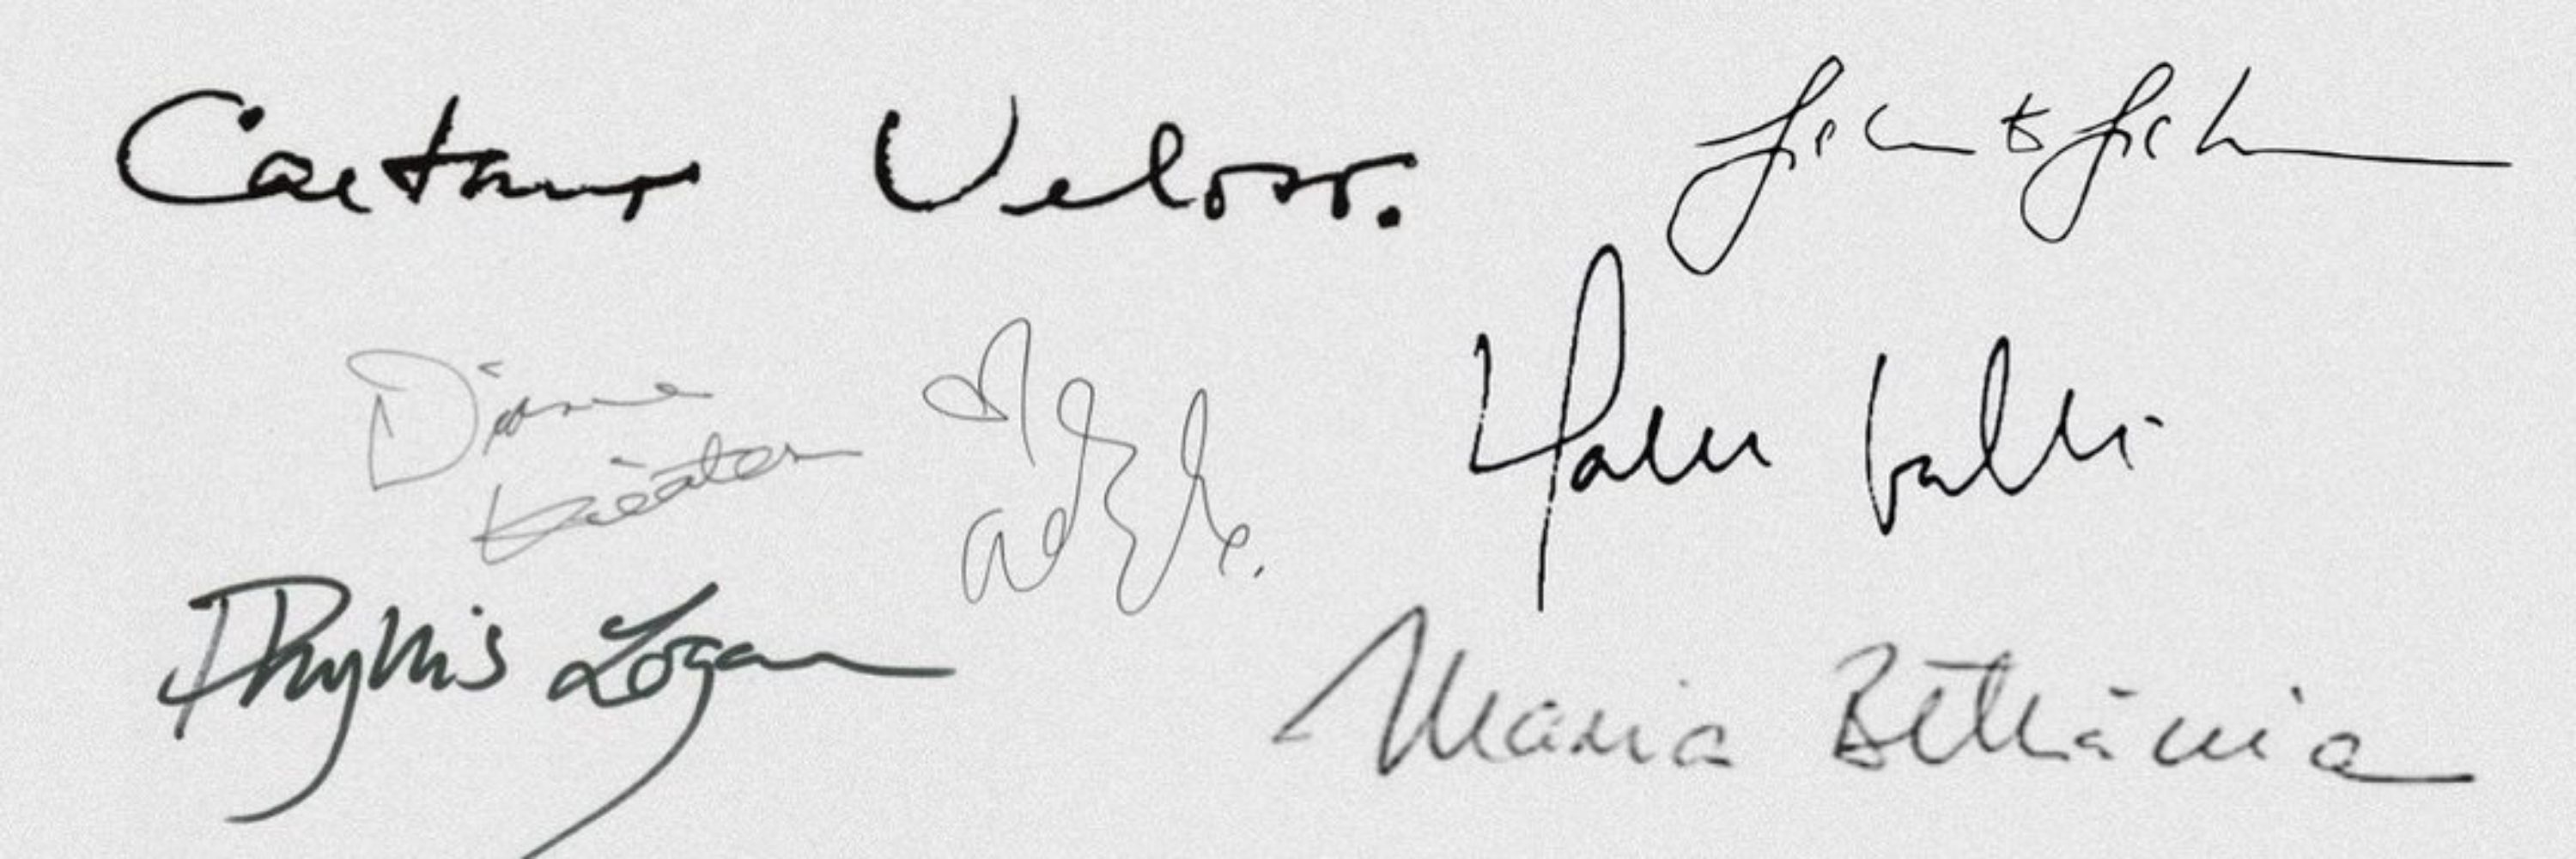 Caetano Veloso.
Diane
Keaton
adele.
Phyllis Logan
Maria Bethânia